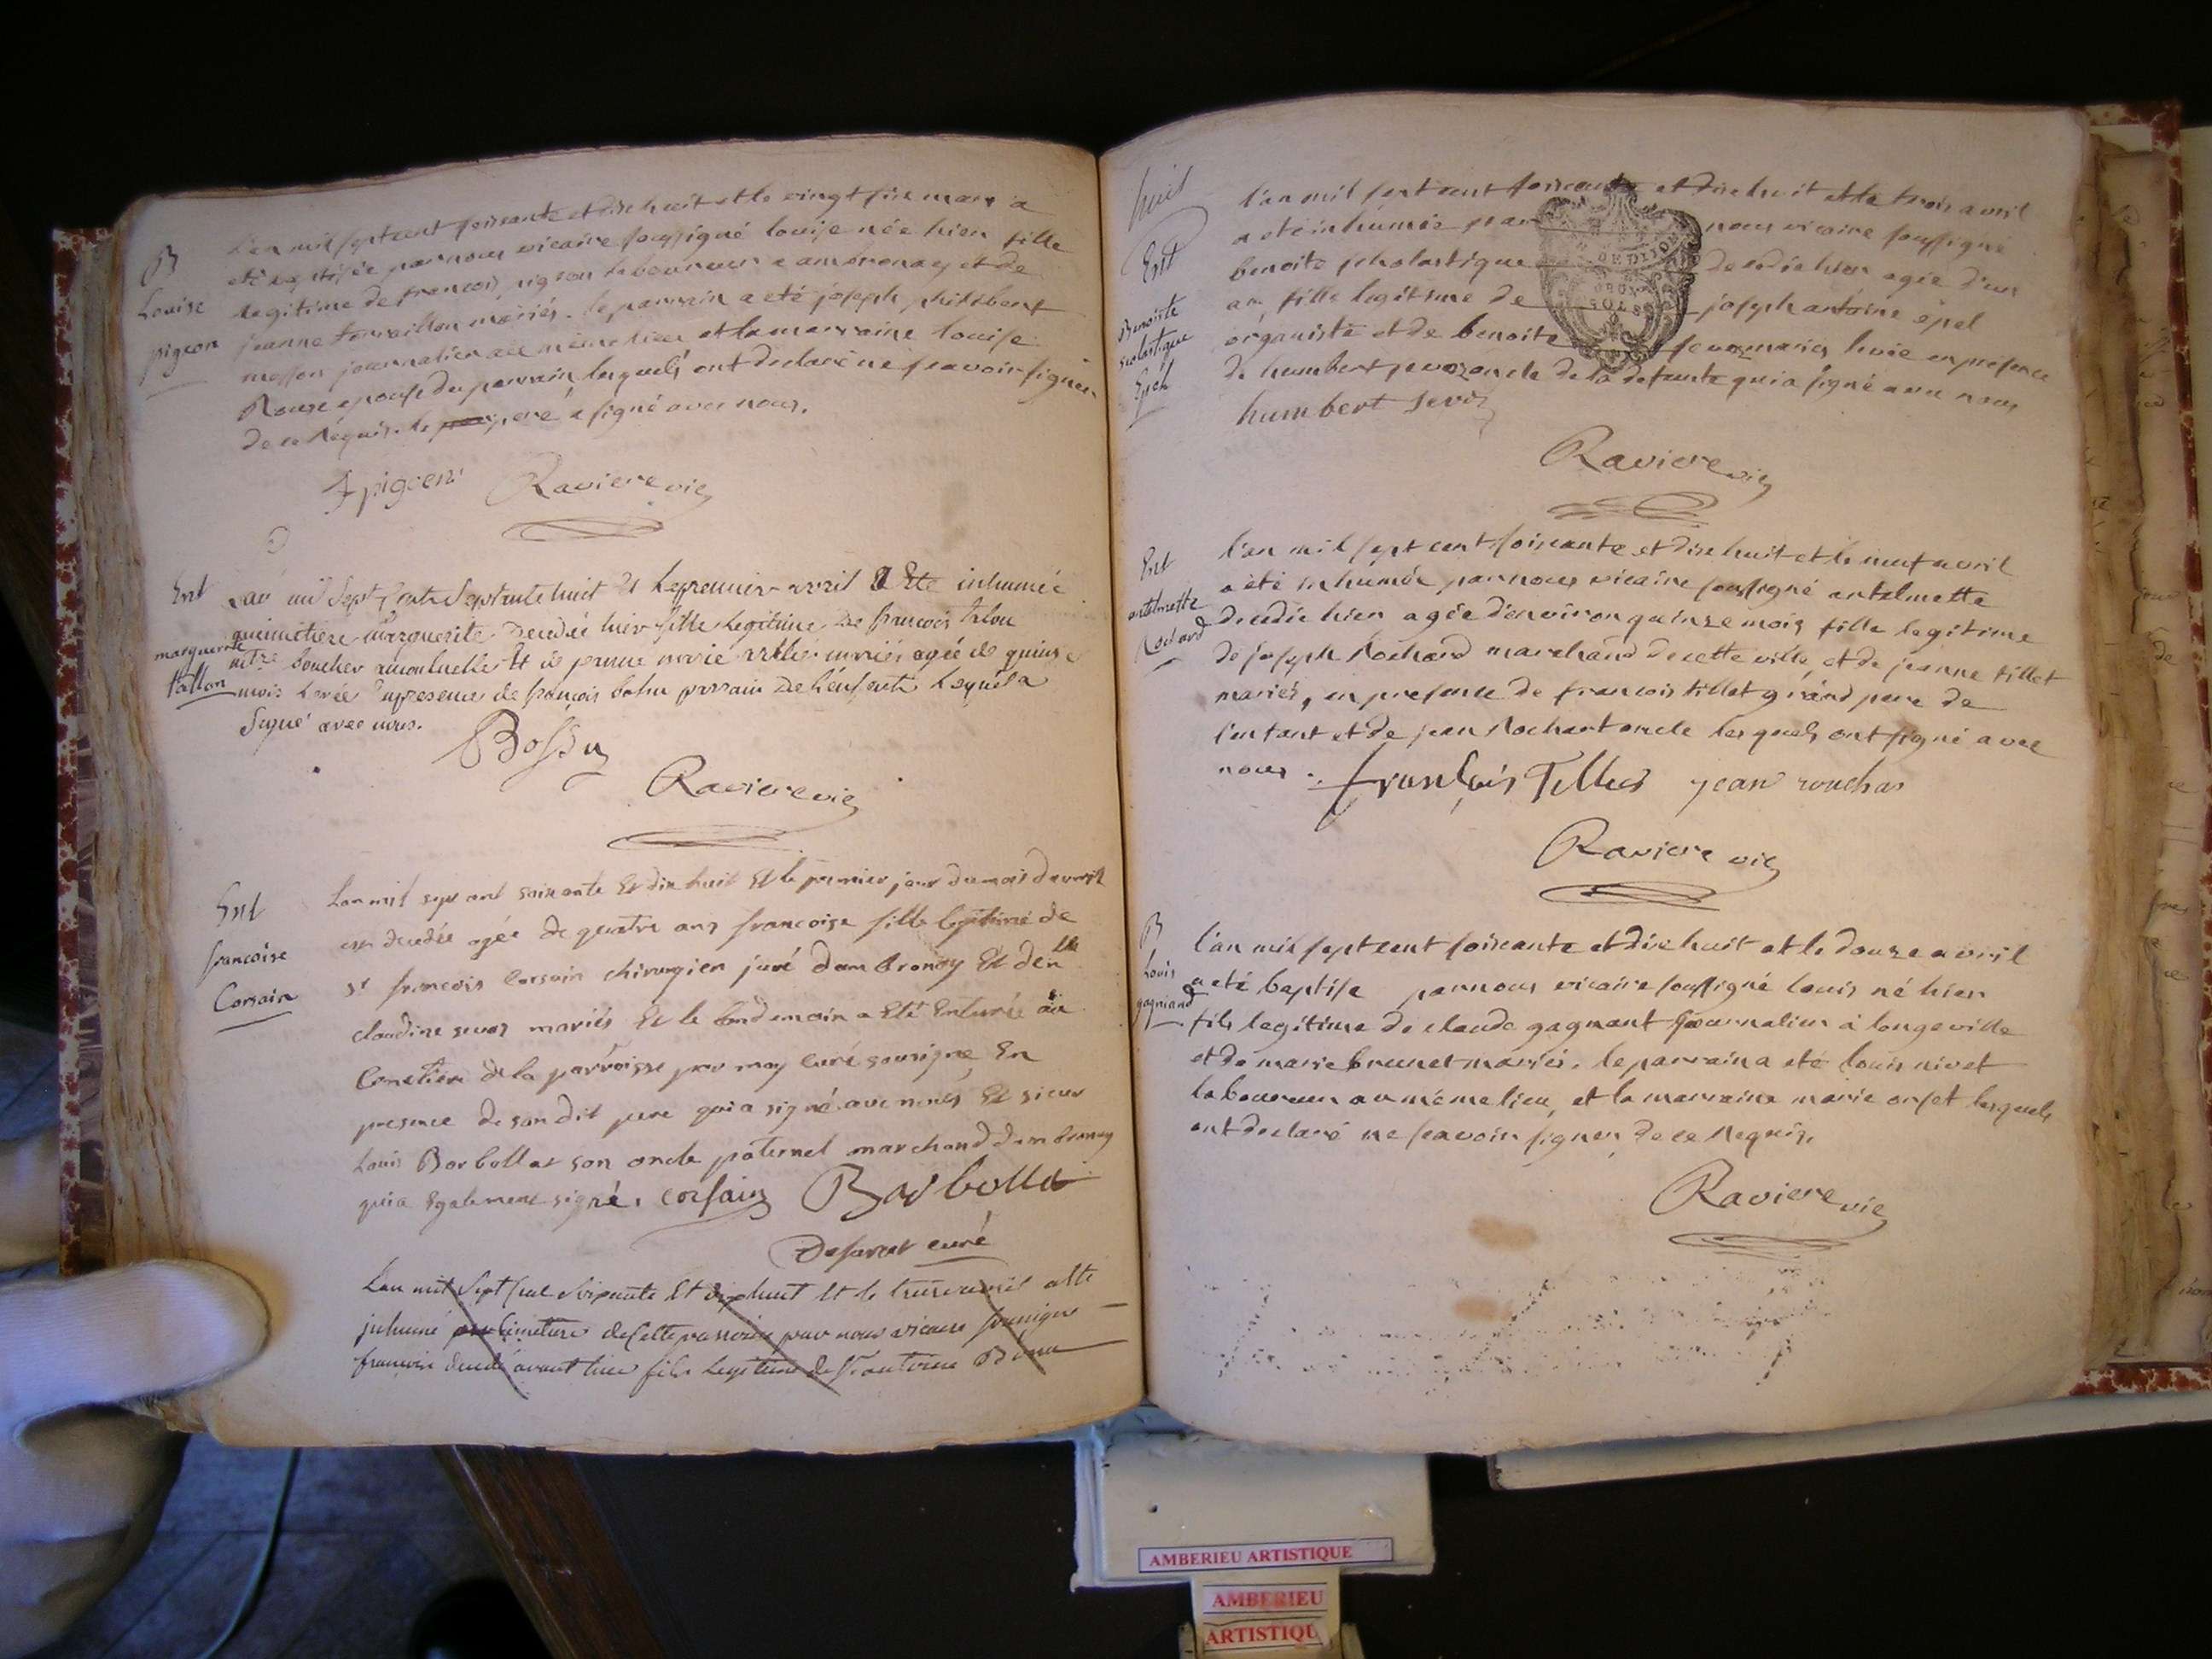 B
Louise
pigeon
L'an mil sept cent soixante et dix huit et le vingt six mars a
eté baptisée par nous vicaire soussigné louise née hier fille
legitime de francois pigeon laboureur a ambronay et de
jeanne terraillon mariés. le parrain a eté joseph philibert
messon journalier au même lieu et la marraine louise
Rouze epouse du parrain, lesquels ont declaré ne scavoir signer
de ce Requis. le peré a signé avec nous.
f pigeon Raviere vic
Ent
marguerite
tallon
L'an mil Sept Cent Septante huit Et le premier avril a Ete inhumée
au cimetiere Marguerite Decedée hier fille Legitime de francois talon
mtre boucher et de jeanne marie mariés agée de quinze
mois Levée En presence de françois bossu parrain de L'enfante Lequel a
Signé avec nous.
Bossu
Raviere vic
Ent
francoise
Corsain
Lan mil sept cent soixante Et dix huit Et le premier jour du mois davril
est decedée agée de quatre ans francoise fille legitime de
sr francois Corsain chirurgien juré dambronay Et de dlle
claudine sevoz mariés Et le lendemain a Eté Enterrée au
Cimetiere de la parroisse par moy curé sousigné En
presence de son dit pere qui a signé avec nous Et sieur
Louis Borbollat son oncle paternel marchand dambronay
qui a Egalement signé. corsain Borbollat
curé
Lan mil Sept Cent Soixante Et dixhuit Et le avril a été
inhumé cimetiere de Cette parroisse par nous vicaire sousigné
francois decedé avant hier fils Legitime de Sr antoine
huit
Ent
Benoiste
scolastique
Epel
l'an mil sept cent soixante et dix huit et le trois avril
a eté inhumée par nous vicaire soussigné
benoite scholastique decedée hier agée d'un
an, fille legitime de joseph antoine epel
organiste et de benoite sevoz mariés livie en presence
de humbert sevoz oncle de la defunte qui a signé avec nous
humbert sevoz
Raviere vic
DE DIJON
SOLS
Ent
antelmette
Rochard
l'an mil sept cent soixante et dix huit et le neuf avril
a été inhumée par nous vicaire soussigné antelmette
decedée hier agée d'environ quinze mois fille legitime
de joseph Rochard marchand de cette ville, et de jeanne tillet
mariés, en presence de francois tillet grand pere de
l'enfant et de jean Rochart oncle lesquels ont signé avec
nous. françois Tillet jean rouchar
Raviere vic
B
Louis
gagniand
l'an mil sept cent soixante et dix huit et le douze avril
a eté baptisé par nous vicaire soussigné louis né hier
fils legitime de claude gagnant journalier à longeville
et de marie brunet mariés. le parrain a eté louis nivet
laboureur au même lieu, et la marraine marie orset lesquels
ont declaré ne scavoir signer, de ce Requis.
Raviere vic
AMBERIEU ARTISTIQUE
AMBERIEU
ARTISTIQU